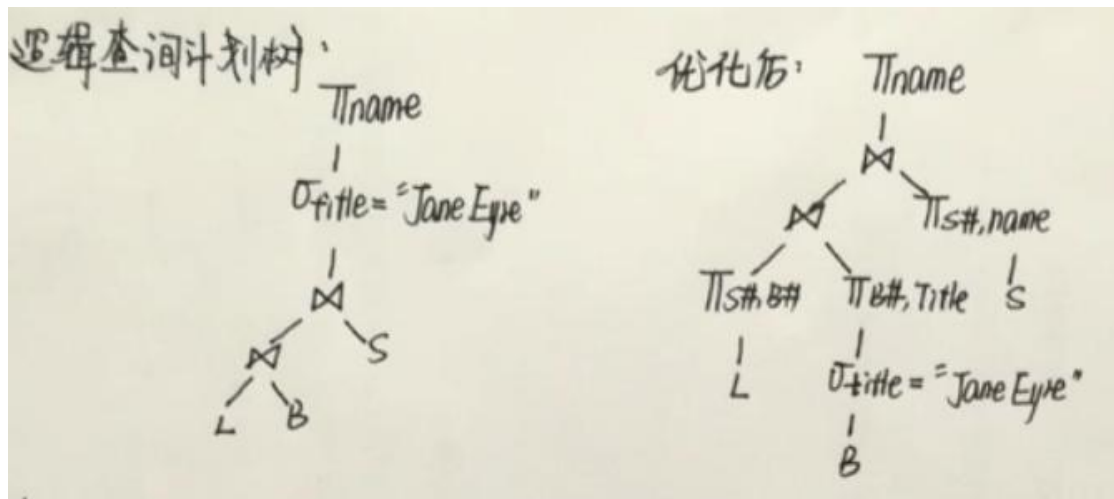 逻辑查询计划树：
πname
σtitle="Jane Eyre"
⋈
⋈ S
L B
优化后：
πname
⋈
⋈ πS#,name
πS#,B# πB#,Title S
L σtitle="Jane Eyre"
B